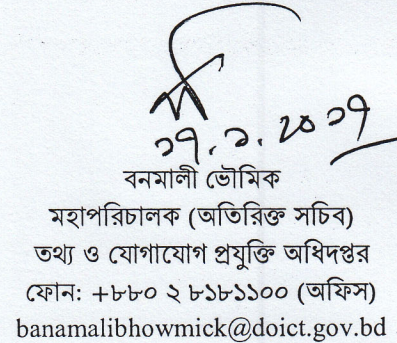 ১৭.১.২০১৭
বনমালী ভৌমিক
মহাপরিচালক (অতিরিক্ত সচিব)
তথ্য ও যোগাযোগ প্রযুক্তি অধিদপ্তর
ফোন: +৮৮০ ২ ৮১৮১১০০ (অফিস)
banamalibhowmick@doict.gov.bd